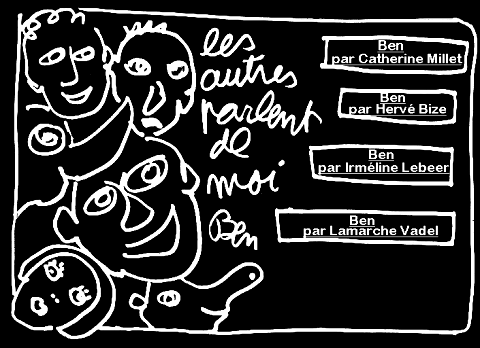 les
autres
parlent
de
moi
Ben
Ben
par Catherine Millet
Ben
par Hervé Bize
Ben
par Irméline Lebeer
Ben
par Lamarche Vadel